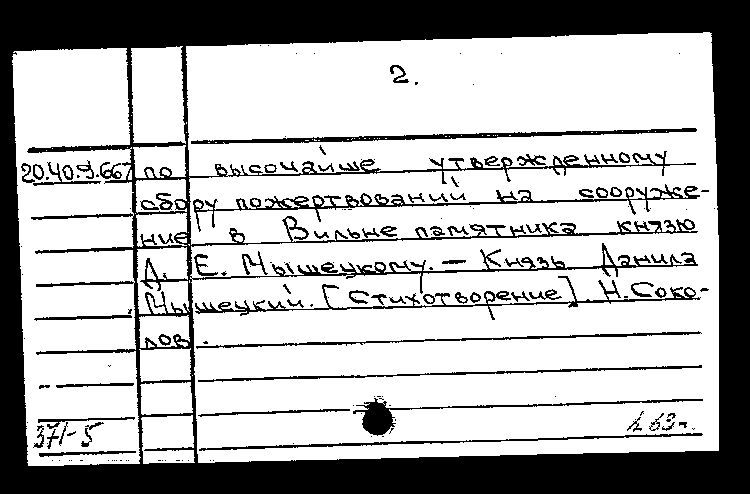 2.
20.40.9.667 по высочайше утвержденному
сбору пожертвований на сооруже-
ние в Вильне памятника князю
Д. Е. Мышецкому. — Князь Данила
Мышецкий. [Стихотворение] Н. Соко-
лов.
371-5